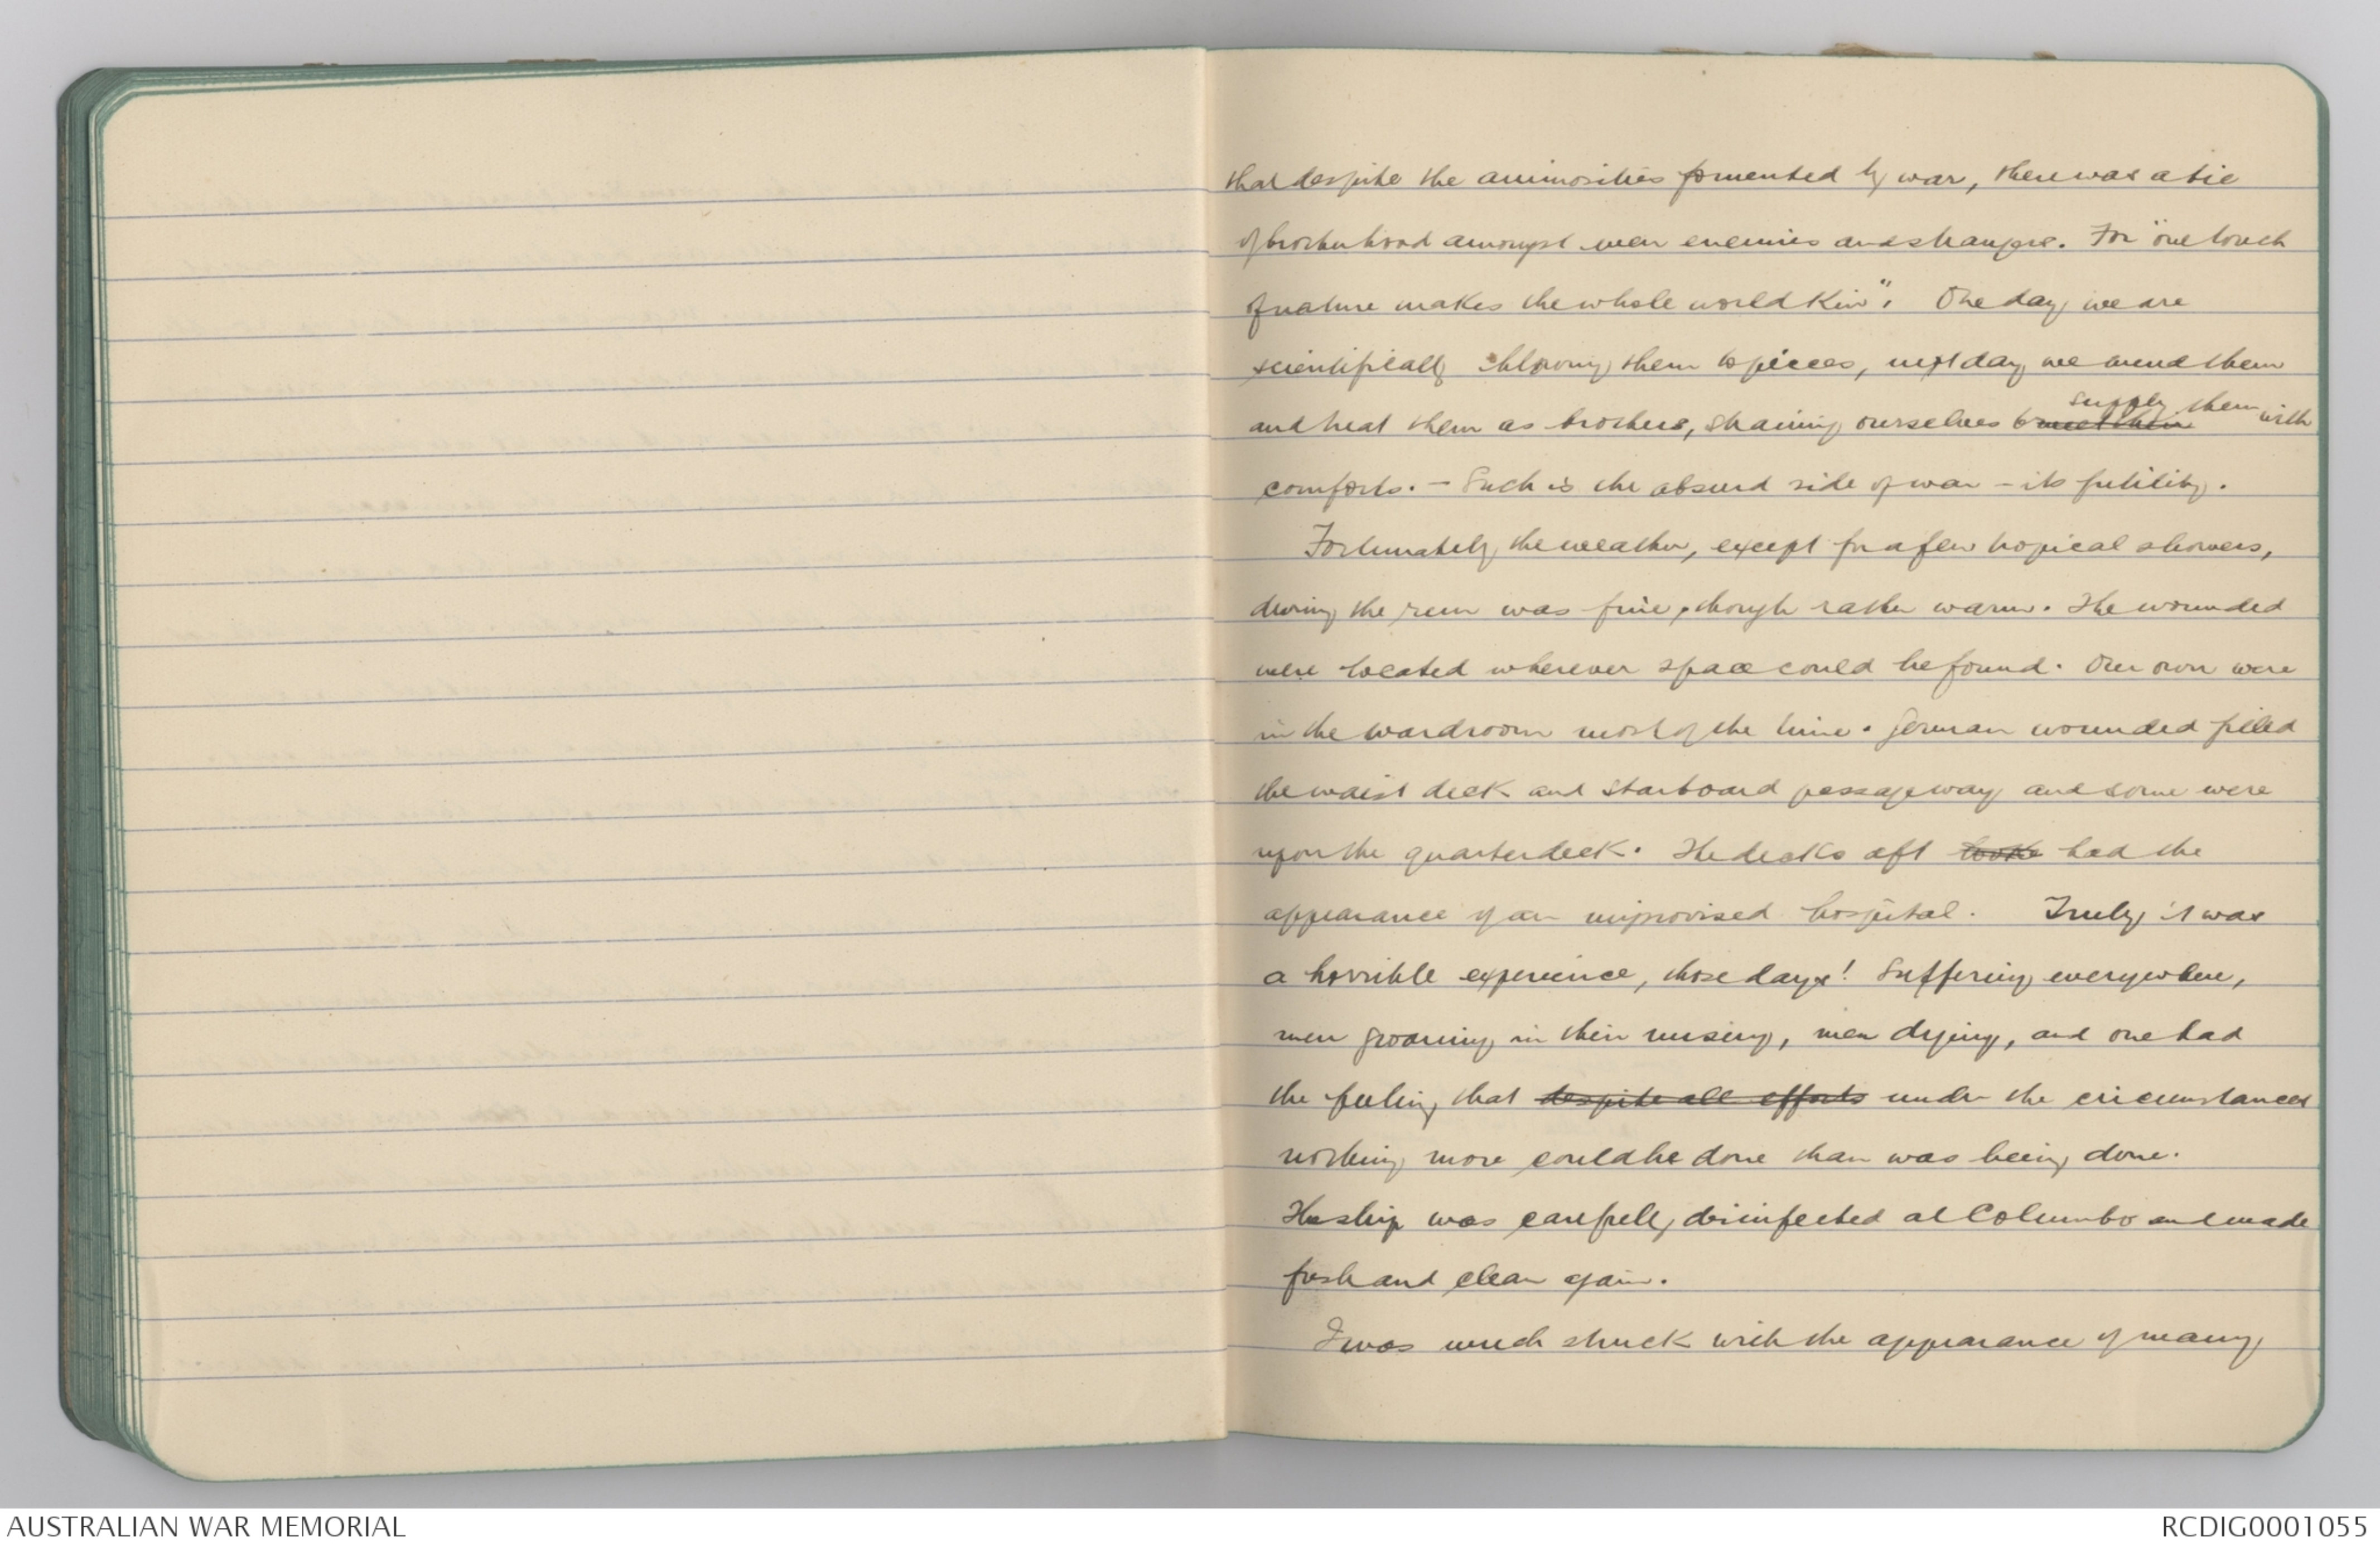 that despite the animosities fomented by war, there was a tie
of brotherhood amongst even enemies and strangers. For "one touch
of nature makes the whole world kin". One day, we are
scientifically blowing them to pieces, next day, we mend them
and treat them as brothers, straining ourselves to meet them supply them with
comforts. - Such is the absurd side of war - its futility.
Fortunately, the weather, except for a few tropical showers,
during the run was fine, though rather warm. The wounded
were located wherever space could be found. Our own were
in the wardroom most of the time. German wounded filled
the waist deck and starboard passageway and some were
upon the quarterdeck. The decks aft took had the
appearance of an improvised hospital. Truly, it was
a horrible experience, those days! Suffering everywhere,
men groaning in their misery, men dying, and one had
the feeling that despite all efforts under the circumstances
nothing more could be done than was being done.
The ship was carefully disinfected at Columbo and made
fresh and clean again.
I was much struck with the appearance of many
AUSTRALIAN WAR MEMORIAL
RCDIG0001055